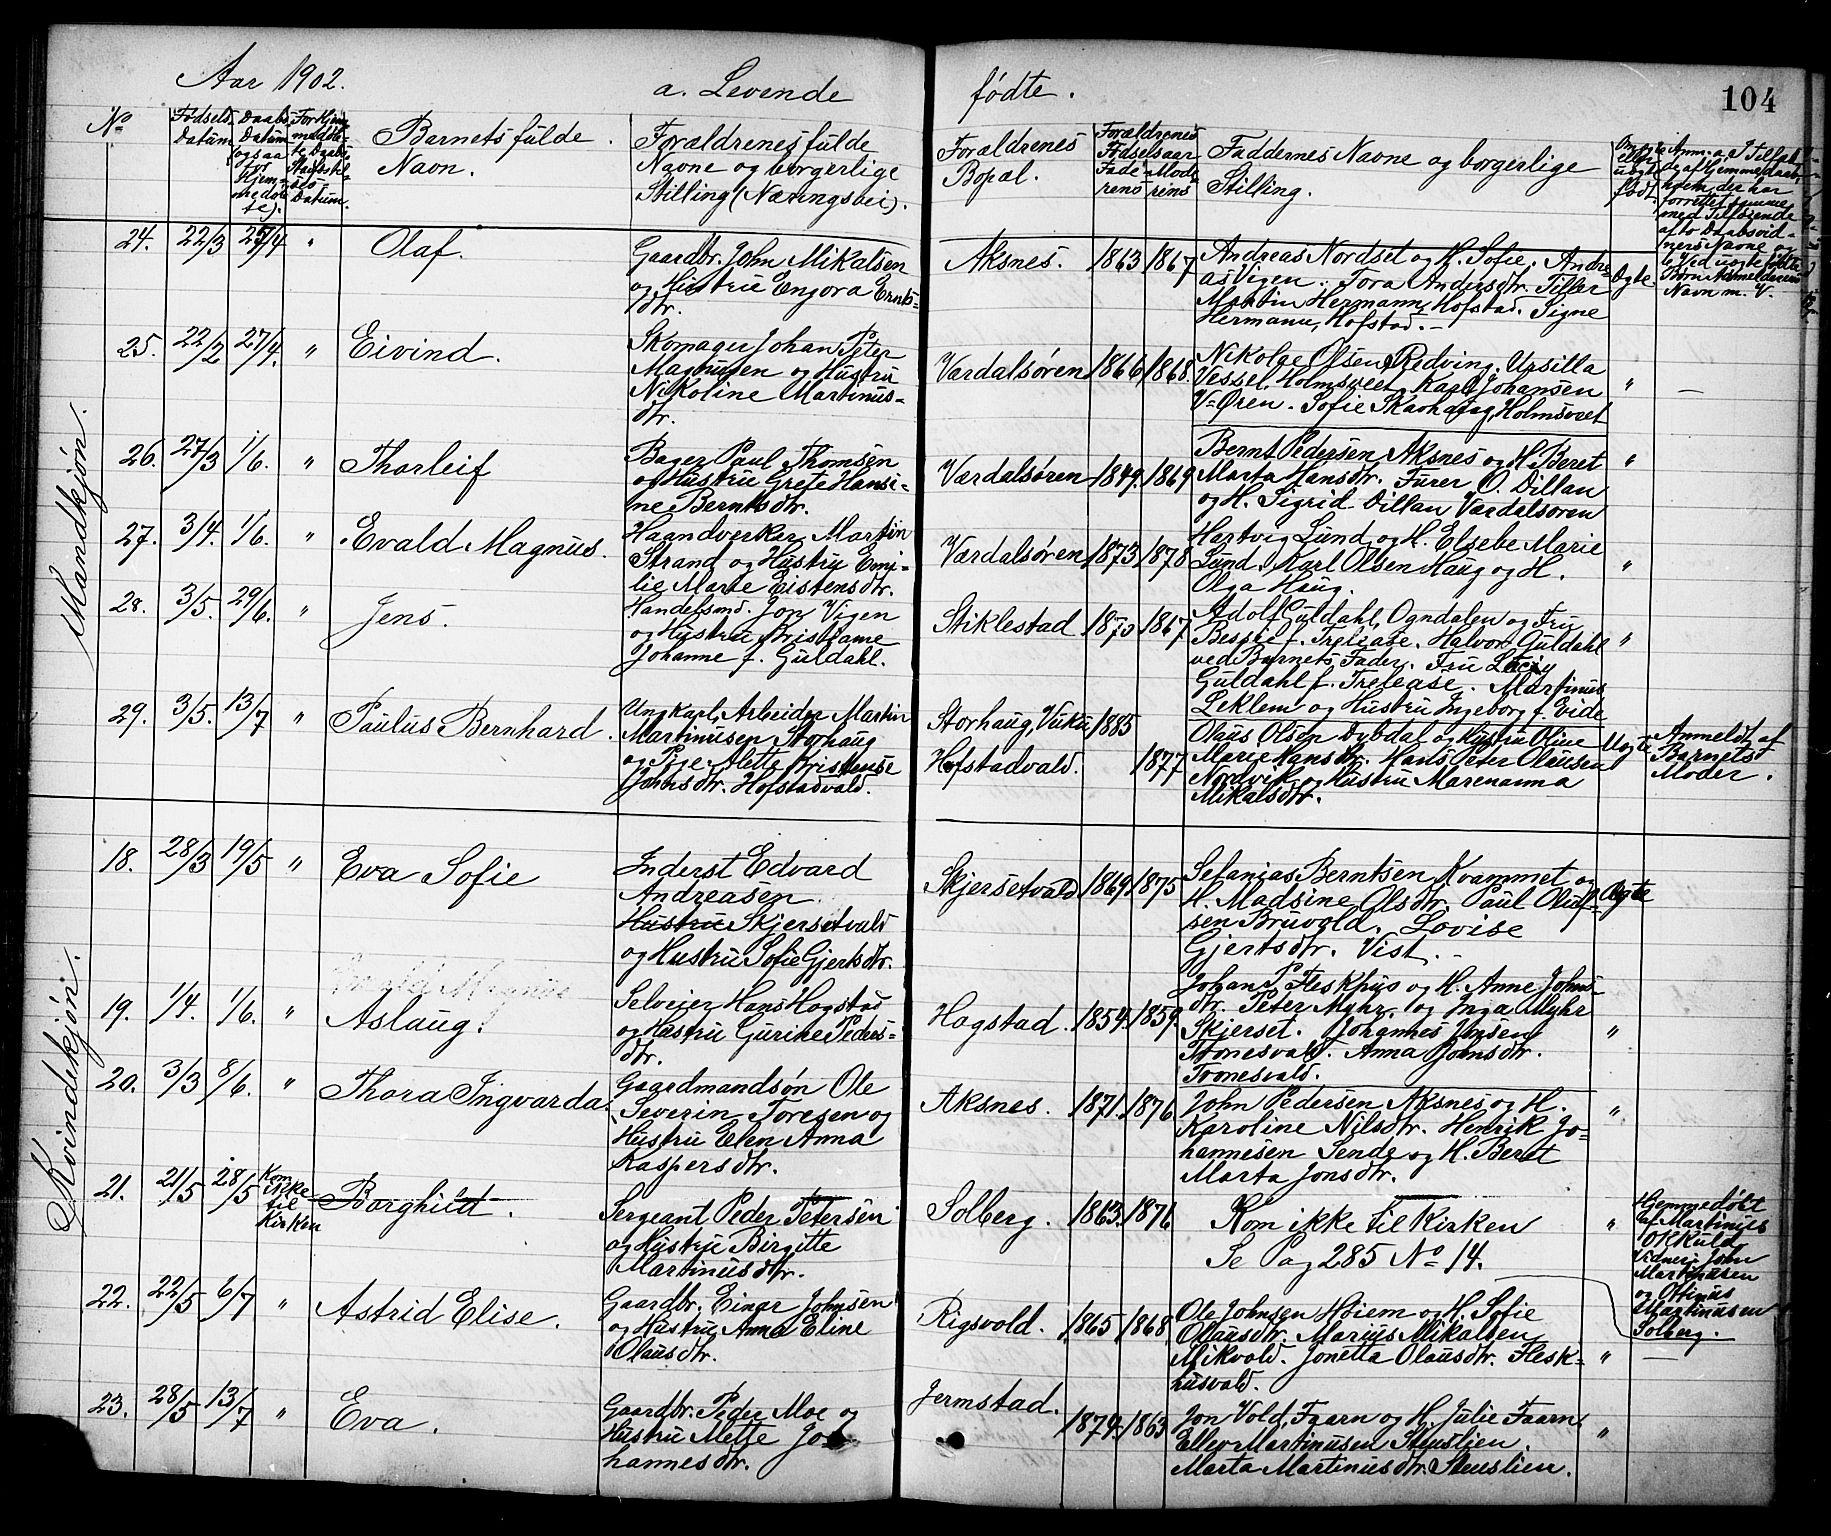 Aar 1902.
a. Levende
fødte.
104
No
Fødsels
Datum
Daabs
Datum
(ogsaa
for
hjem-
medøb-
te).
Barnets fulde
Navn.
Forældrenes fulde
Navne og borgerlige
Stilling (Næringsvei).
Forældrenes
Bopæl.
Forældrenes
Fødselsaar
Fade-
rens
Mode-
rens
Faddernes Navne og borgerlige
Stilling.
Om ægte
eller
uægte
født.
Mandkjøn.
24. 22/3 27/4 " Olaf.
Gaardbr. John Mikalsen
og Hustru Enjora Ernts-
dtr.
Aksnes. 1863 1867
Andreas Nordset og H. Sofie. Andre-
as Vigen. Tora Andersdtr. Tiller
Martin Hermann, Hofstad. Signe
Hermann, Hofstad.
Ægte.
25. 22/2 27/4. " Eivind.
Skomager Johan Peter
Magnusen og Hustru
Nikoline Martinus-
dtr.
Værdalsøren 1866 1868.
Nikolae Olsen, Ridving. Ursilla
Vessel, Holmsveet. Karl Johansen
V=Øren. Sofie Skavhaug, Holmsveet
" —
26. 27/3 1/6. " Thorleif
Bager Paul Thomsen
og Hustru Grete Hansi-
ne Berntsdtr.
Værdalsøren 1849. 1869
Bernt Pedersen Aksnes og H. Beret
Marta Hansdtr. Furer O. Dillan
og H. Sigrid Dillan Værdalsøren
"
27. 3/4. 1/6. " Evald Magnus.
Haandverker Martin
Strand og Hustru Emi-
lie Marie Eistensdtr.
Værdalsøren 1873 1878
Hartvig Lund og H. Elsebe Marie
Lund. Karl Olsen Haug og H.
Olga Haug.
"
28. 3/5. 29/6. " Jens.
Handelsmd. Jon Vigen
og Hustru Kristiane
Johanne f. Guldahl.
Stiklestad 1873 1867
Adolf Guldahl, Ogndalen og Fru
Bessie f. Trelease. Halvor Guldahl
ved Barnets Fader. Fru Lucy
Guldahl f. Trelease. Martinus
Leklem og Hustru Ingeborg f. Eide
"
29. 3/5. 13/7 " Paulus Bernhard.
Ungkarl, Arbeider Martin
Martinusen Storhaug
og Pige Alette Kristense
Johnsdtr. Hofstadvald.
Storhaug, Vuku 1885
Hofstadvald. 1877
Olaus Olsen Dybdal og Hustru Oline
Marie Hansdtr. Hans Peter Olausen
Nordvik og Hustru Marenanna
Mikalsdtr.
Uægte
Anmeldt af
Barnets
Moder.
Kvindekjøn.
18. 28/3 19/5 " Eva Sofie
Inderst Edvard
Andreasen
Hustru Skjersetvald
og Hustru Sofie Gjertsdtr.
Skjersetvald 1869. 1875
Sefanias Berntsen Kvammet og
H. Madsine Olsdtr. Paul Oluf-
sen Bruvold. Lovise
Gjertsdtr. Vist.
Ægte
19. 1/4. 1/6. " Aslaug.
Selveier Hans Hogstad
og Hustru Gurine Peders-
dtr.
Hogstad. 1854. 1859.
Johan P. Fleskhus og H. Anne Johns-
dtr. Peter Myhr. og Inga Myhr
Skjerset. Johannes Jensen
Tronesvald. Anna Johnsdtr.
Tronesvald.
"
20. 3/3 8/6. " Thora Ingvarda.
Gaardmandsøn Ole
Severin Toresen og
Hustru Elen Anna
Kaspersdtr.
Aksnes. 1871. 1876
John Pedersen Aksnes og H.
Karoline Nilsdtr. Henrik Jo-
hannesen Sende og H. Beret
Marta Jonsdtr.
"
21. 21/5 28/5 Kom
ikke
til
Kirken
Borghild.
Sergeant Peder Petersen
og Hustru Birgitte
Martinusdtr.
Solberg. 1863. 1876
Kom ikke til Kirken
Se Pag 285 No 14.
"
Hjemmedøbt
af Martinus
Okkuld
Vidner: John
Martinusen
og Ottinus
Martinusen
Solberg.
22. 22/5 6/7 " Astrid Elise.
Gaardbr. Einar Johnsen
og Hustru Anna Eline
Olausdtr.
Rigsvold. 1865 1868
Ole Johnsen Høiem og H. Sofie
Olausdtr. Marius Mikalsen
Mikvold. Jonetta Olausdtr. Flesk-
husvald.
" —
23. 28/5 13/7 " Eva.
Gaardbr. Peder Moe og
Hustru Mette Jo-
hannesdtr.
Jermstad. 1874. 1863
Jon Vold, Faarn og H. Julie Faarn.
Ellev Martinusen Stuslien.
Marta Martinusdtr. Stuslien.
"